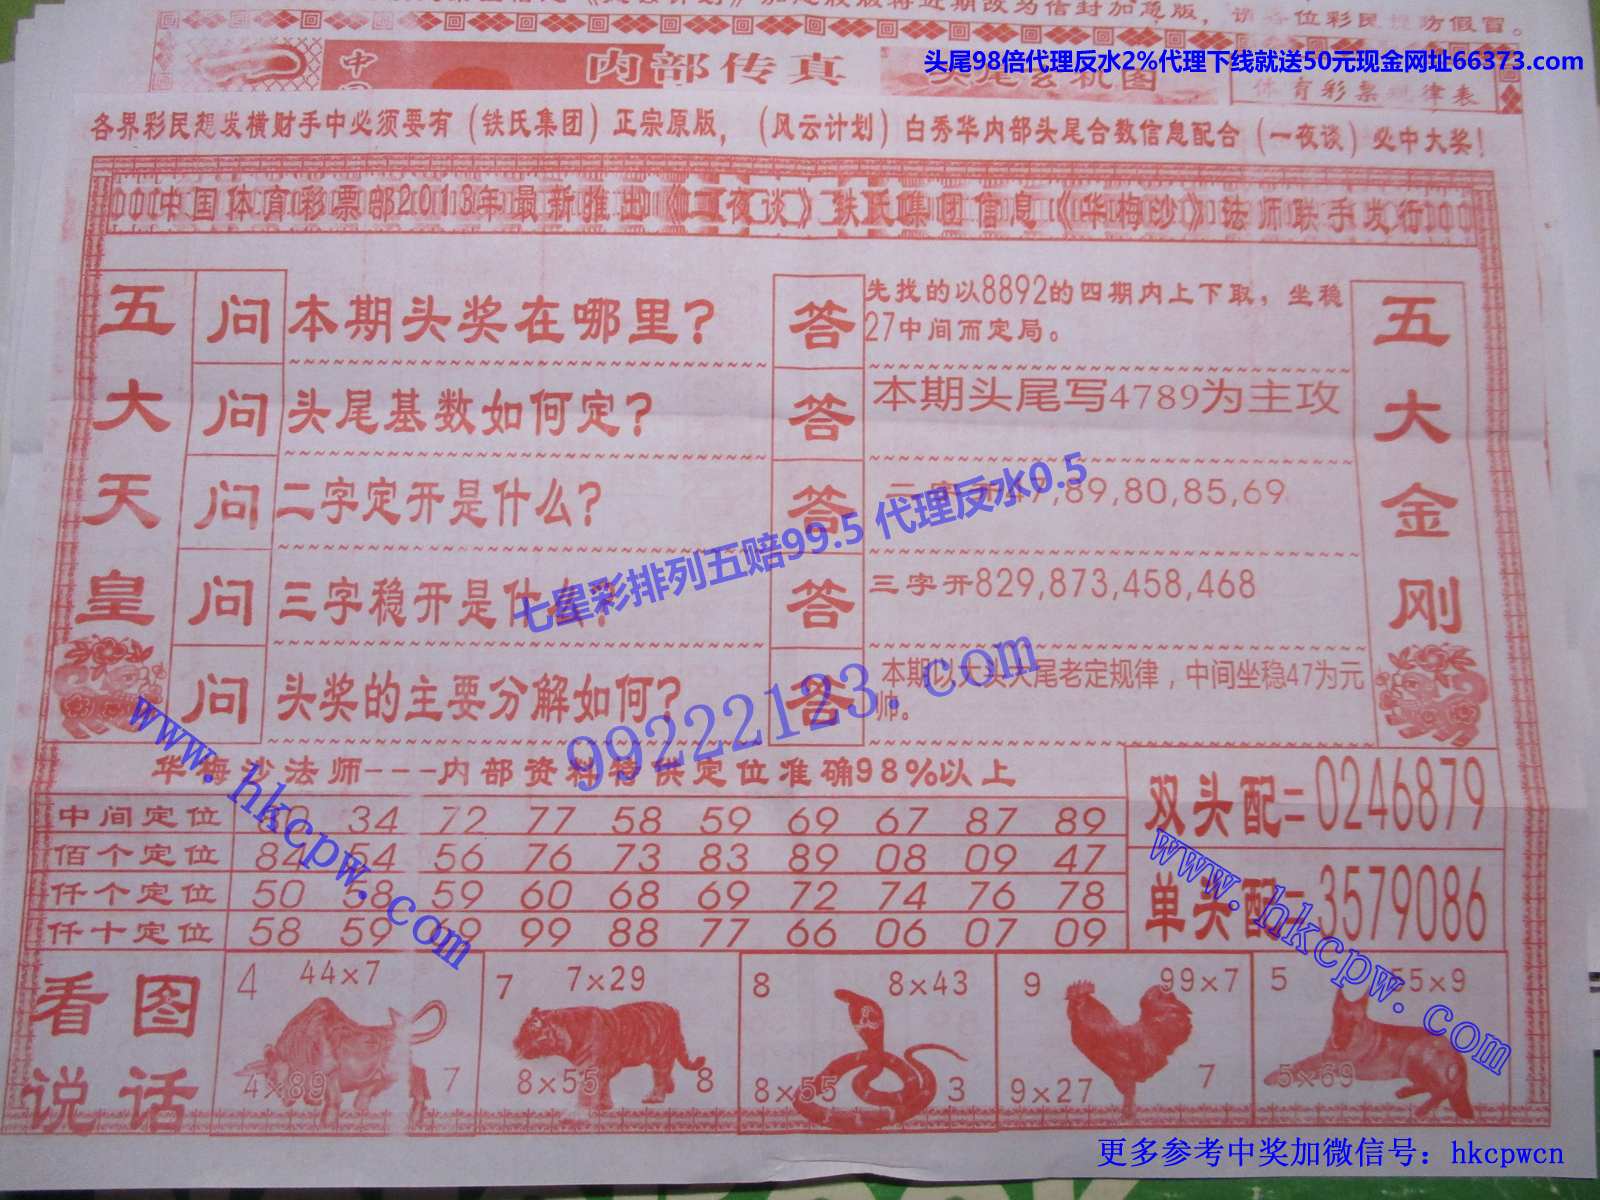 请各位彩民提防假冒。
头尾98倍代理反水2%代理下线就送50元现金网址66373.com
中
内部传真
体育彩票规律表
各界彩民想发横财手中必须要有（铁氏集团）正宗原版，（风云计划）白秀华内部头尾合数信息配合（一夜谈）必中大奖！
中国体育彩票部2013年最新推出《夜谈》铁氏集团信息《华梅沙》法师联手发行
五大天皇
五大金刚
问 本期头奖在哪里？
答 先找的以8892的四期内上下取，坐稳
27中间而定局。
问 头尾基数如何定？
答 本期头尾写4789为主攻
问 二字定开是什么？
答 二字开47,89,80,85,69
问 三字稳开是什么？
答 三字开829,873,458,468
问 头奖的主要分解如何？
答 本期以大头大尾老定规律，中间坐稳47为元
帅。
七星彩排列五赔99.5 代理反水0.5
99222123.com
www.hkcpw.com
www.hkcpw.com
华梅沙法师---内部资料特供定位准确98%以上
中间定位 34 72 77 58 59 69 67 87 89
佰个定位 84 54 56 76 73 83 89 08 09 47
仟个定位 50 58 59 60 68 69 72 74 76 78
仟十定位 58 59 09 99 88 77 66 06 07 09
双头配=0246879
单头配=3579086
看图说话
4 44×7
4×89 7
7 7×29
8×55 8
8 8×43
8×55 3
9 99×7
9×27 7
5 55×9
5×69
更多参考中奖加微信号：hkcpwcn